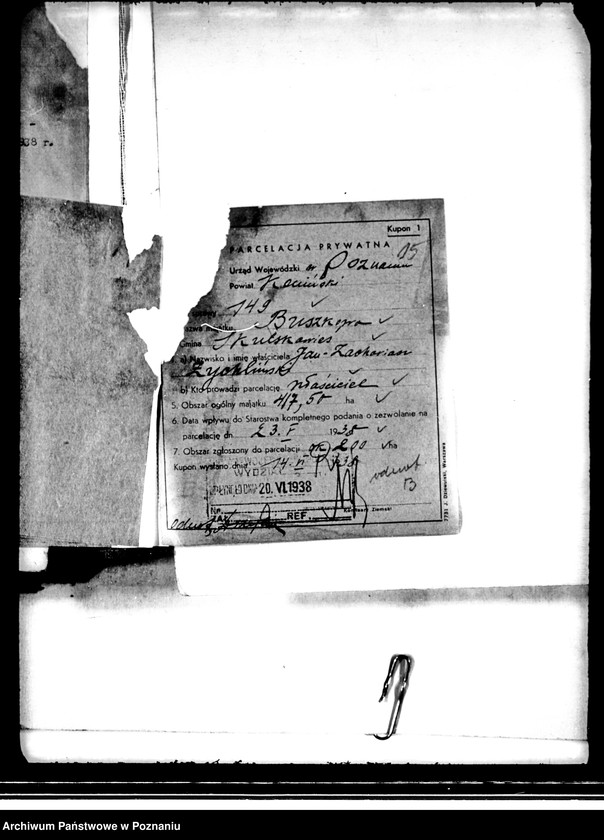 38 r.
Kupon 1
PARCELACJA PRYWATNA
95
Urząd Wojewódzki w Poznaniu
Powiat Koniński
149
Buszkowo
Gmina Skulska wieś
a) Nazwisko i imię właściciela Jan-Zachariasz
Żychliński
b) Kto prowadzi parcelację właściciel
5. Obszar ogólny majątku 417,50 ha
6. Data wpływu do Starostwa kompletnego podania o zezwolenie na
parcelację dn. 23. V 1938
7. Obszar zgłoszony do parcelacji ok 200 ha
Kupon wysłano dnia 14. VI 1938
20. VI. 1938
Komisarz Ziemski
Nr.
ZAŁ. REF.
7731 J. Dziewulski, Warszawa
Archiwum Państwowe w Poznaniu